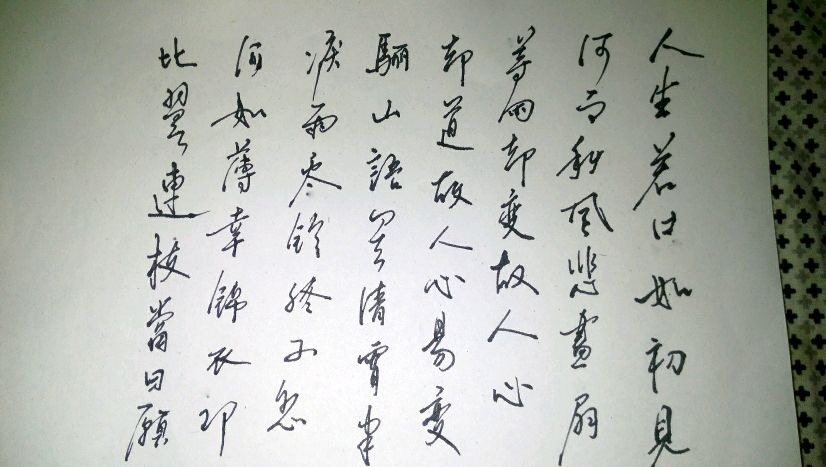 人生若只如初見
何事秋風悲畫扇
等閒却變故人心
却道故人心易變
驪山語罷清宵半
淚雨零鈴終不怨
何如薄幸錦衣郎
比翼連枝當日願